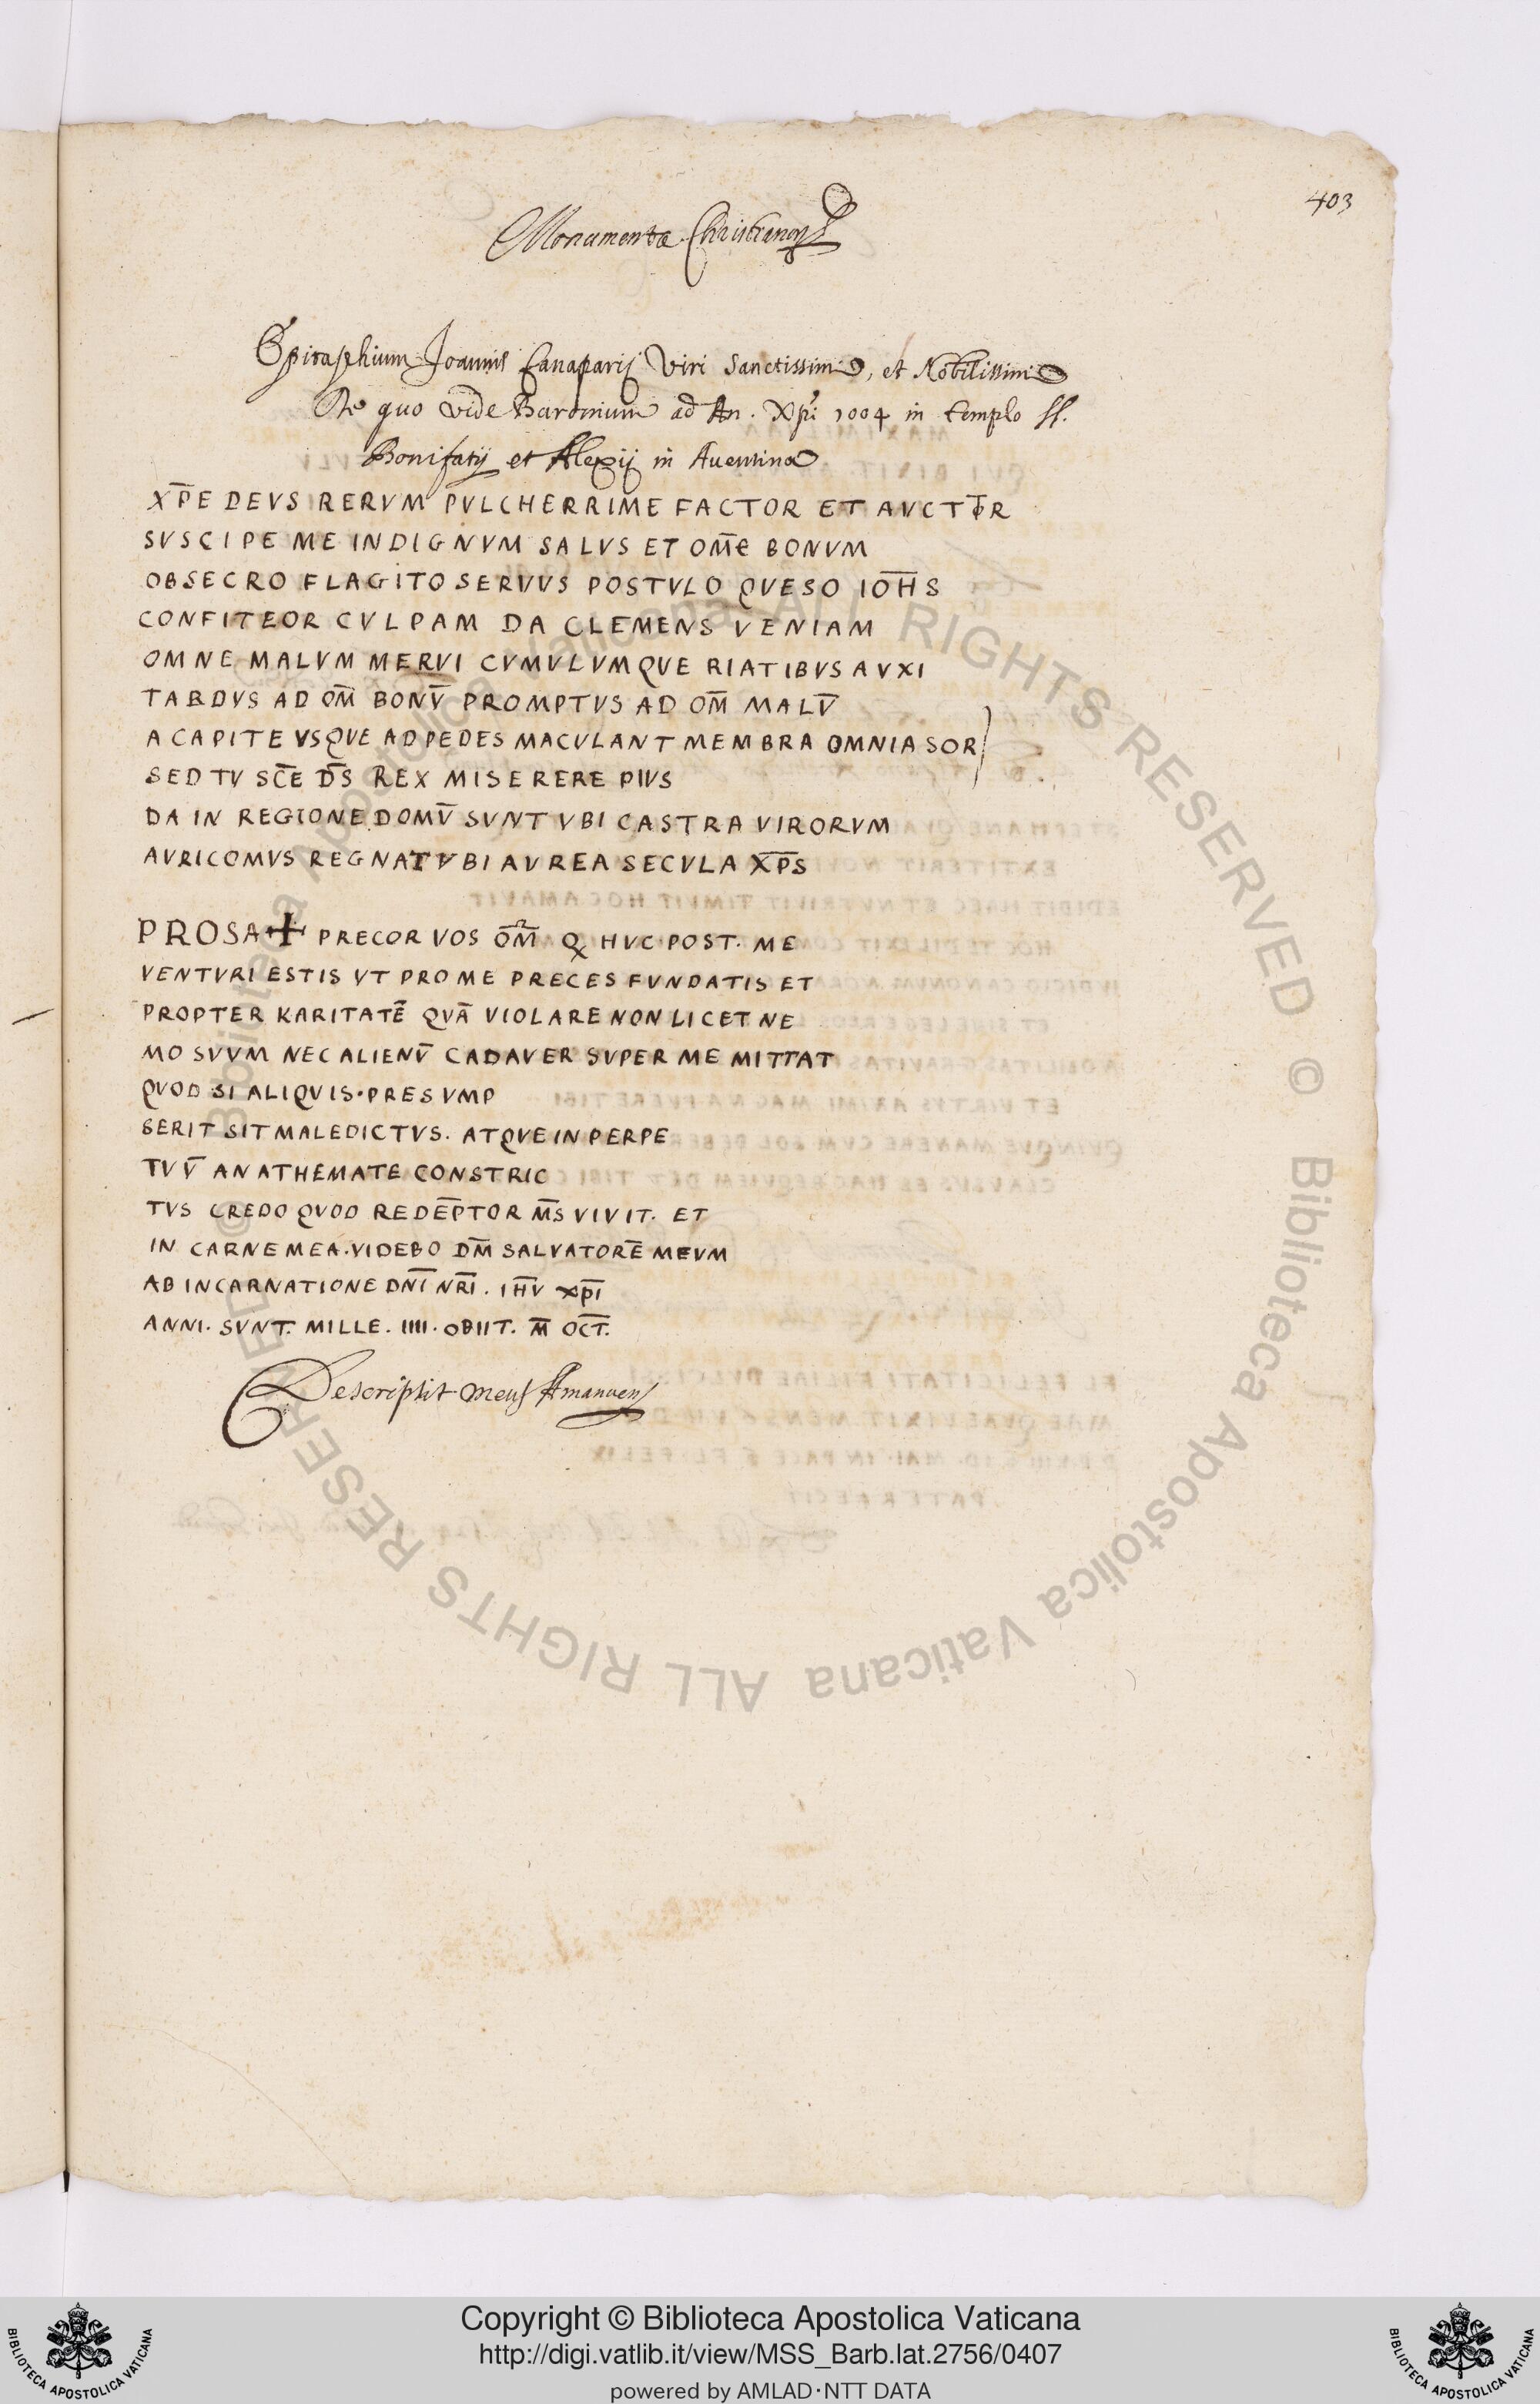 403
Monumenta Christianoꝝ
Epitaphium Joannis Canaparij Viri Sanctissimi, et Nobilissimi
De quo vide Baronium ad An. Xpi 1004 in templo SS.
Bonifatij et Alexij in Auentino
XP̅E DEVS RERVM PVLCHERRIME FACTOR ET AVCTOR
SVSCIPE ME INDIGNVM SALVS ET OM̅E BONVM
OBSECRO FLAGITO SERVVS POSTVLO QVESO IOH̅S
CONFITEOR CVLPAM DA CLEMENS VENIAM
OMNE MALVM MERVI CVMVLVMQVE RIATIBVS AVXI
TARDVS AD OM̅ BONV̅ PROMPTVS AD OM̅ MALV̅
A CAPITE VSQVE AD PEDES MACVLANT MEMBRA OMNIA SOR
SED TV SC̅E D̅S REX MISERERE PIVS
DA IN REGIONE DOMV̅ SVNT VBI CASTRA VIRORVM
AVRICOMVS REGNAT VBI AVREA SECVLA XP̅S
PROSA ✝ PRECOR VOS OM̅ Q HVC POST. ME
VENTVRI ESTIS VT PRO ME PRECES FVNDATIS ET
PROPTER KARITATE̅ QVA̅ VIOLARE NON LICET NE
MO SVVM NEC ALIENV̅ CADAVER SVPER ME MITTAT
QVOD SI ALIQVIS. PRESVMP
SERIT SIT MALEDICTVS. ATQVE IN PERPE
TVV̅ ANATHEMATE CONSTRIC
TVS CREDO QVOD REDE̅PTOR M̅S VIVIT. ET
IN CARNE MEA. VIDEBO DM̅ SALVATORE̅ MEVM
AB INCARNATIONE DN̅I NR̅I. IH̅V XP̅I
ANNI. SVNT. MILLE. IIII. OBIIT. M̅ OC̅T.
Descripsit Meus Amanuens
© Biblioteca Apostolica Vaticana ALL RIGHTS RESERVED © Biblioteca Apostolica Vaticana ALL RIGHTS RESERVED
Copyright © Biblioteca Apostolica Vaticana
http://digi.vatlib.it/view/MSS_Barb.lat.2756/0407
powered by AMLAD·NTT DATA
BIBLIOTECA APOSTOLICA VATICANA
BIBLIOTECA APOSTOLICA VATICANA